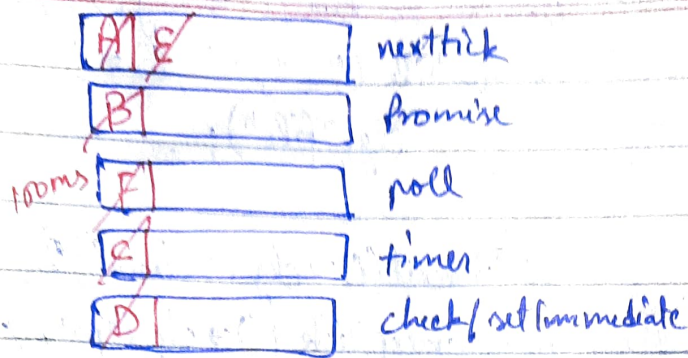 A E nexttick
B Promise
100ms F poll
C timer
D check/setImmediate